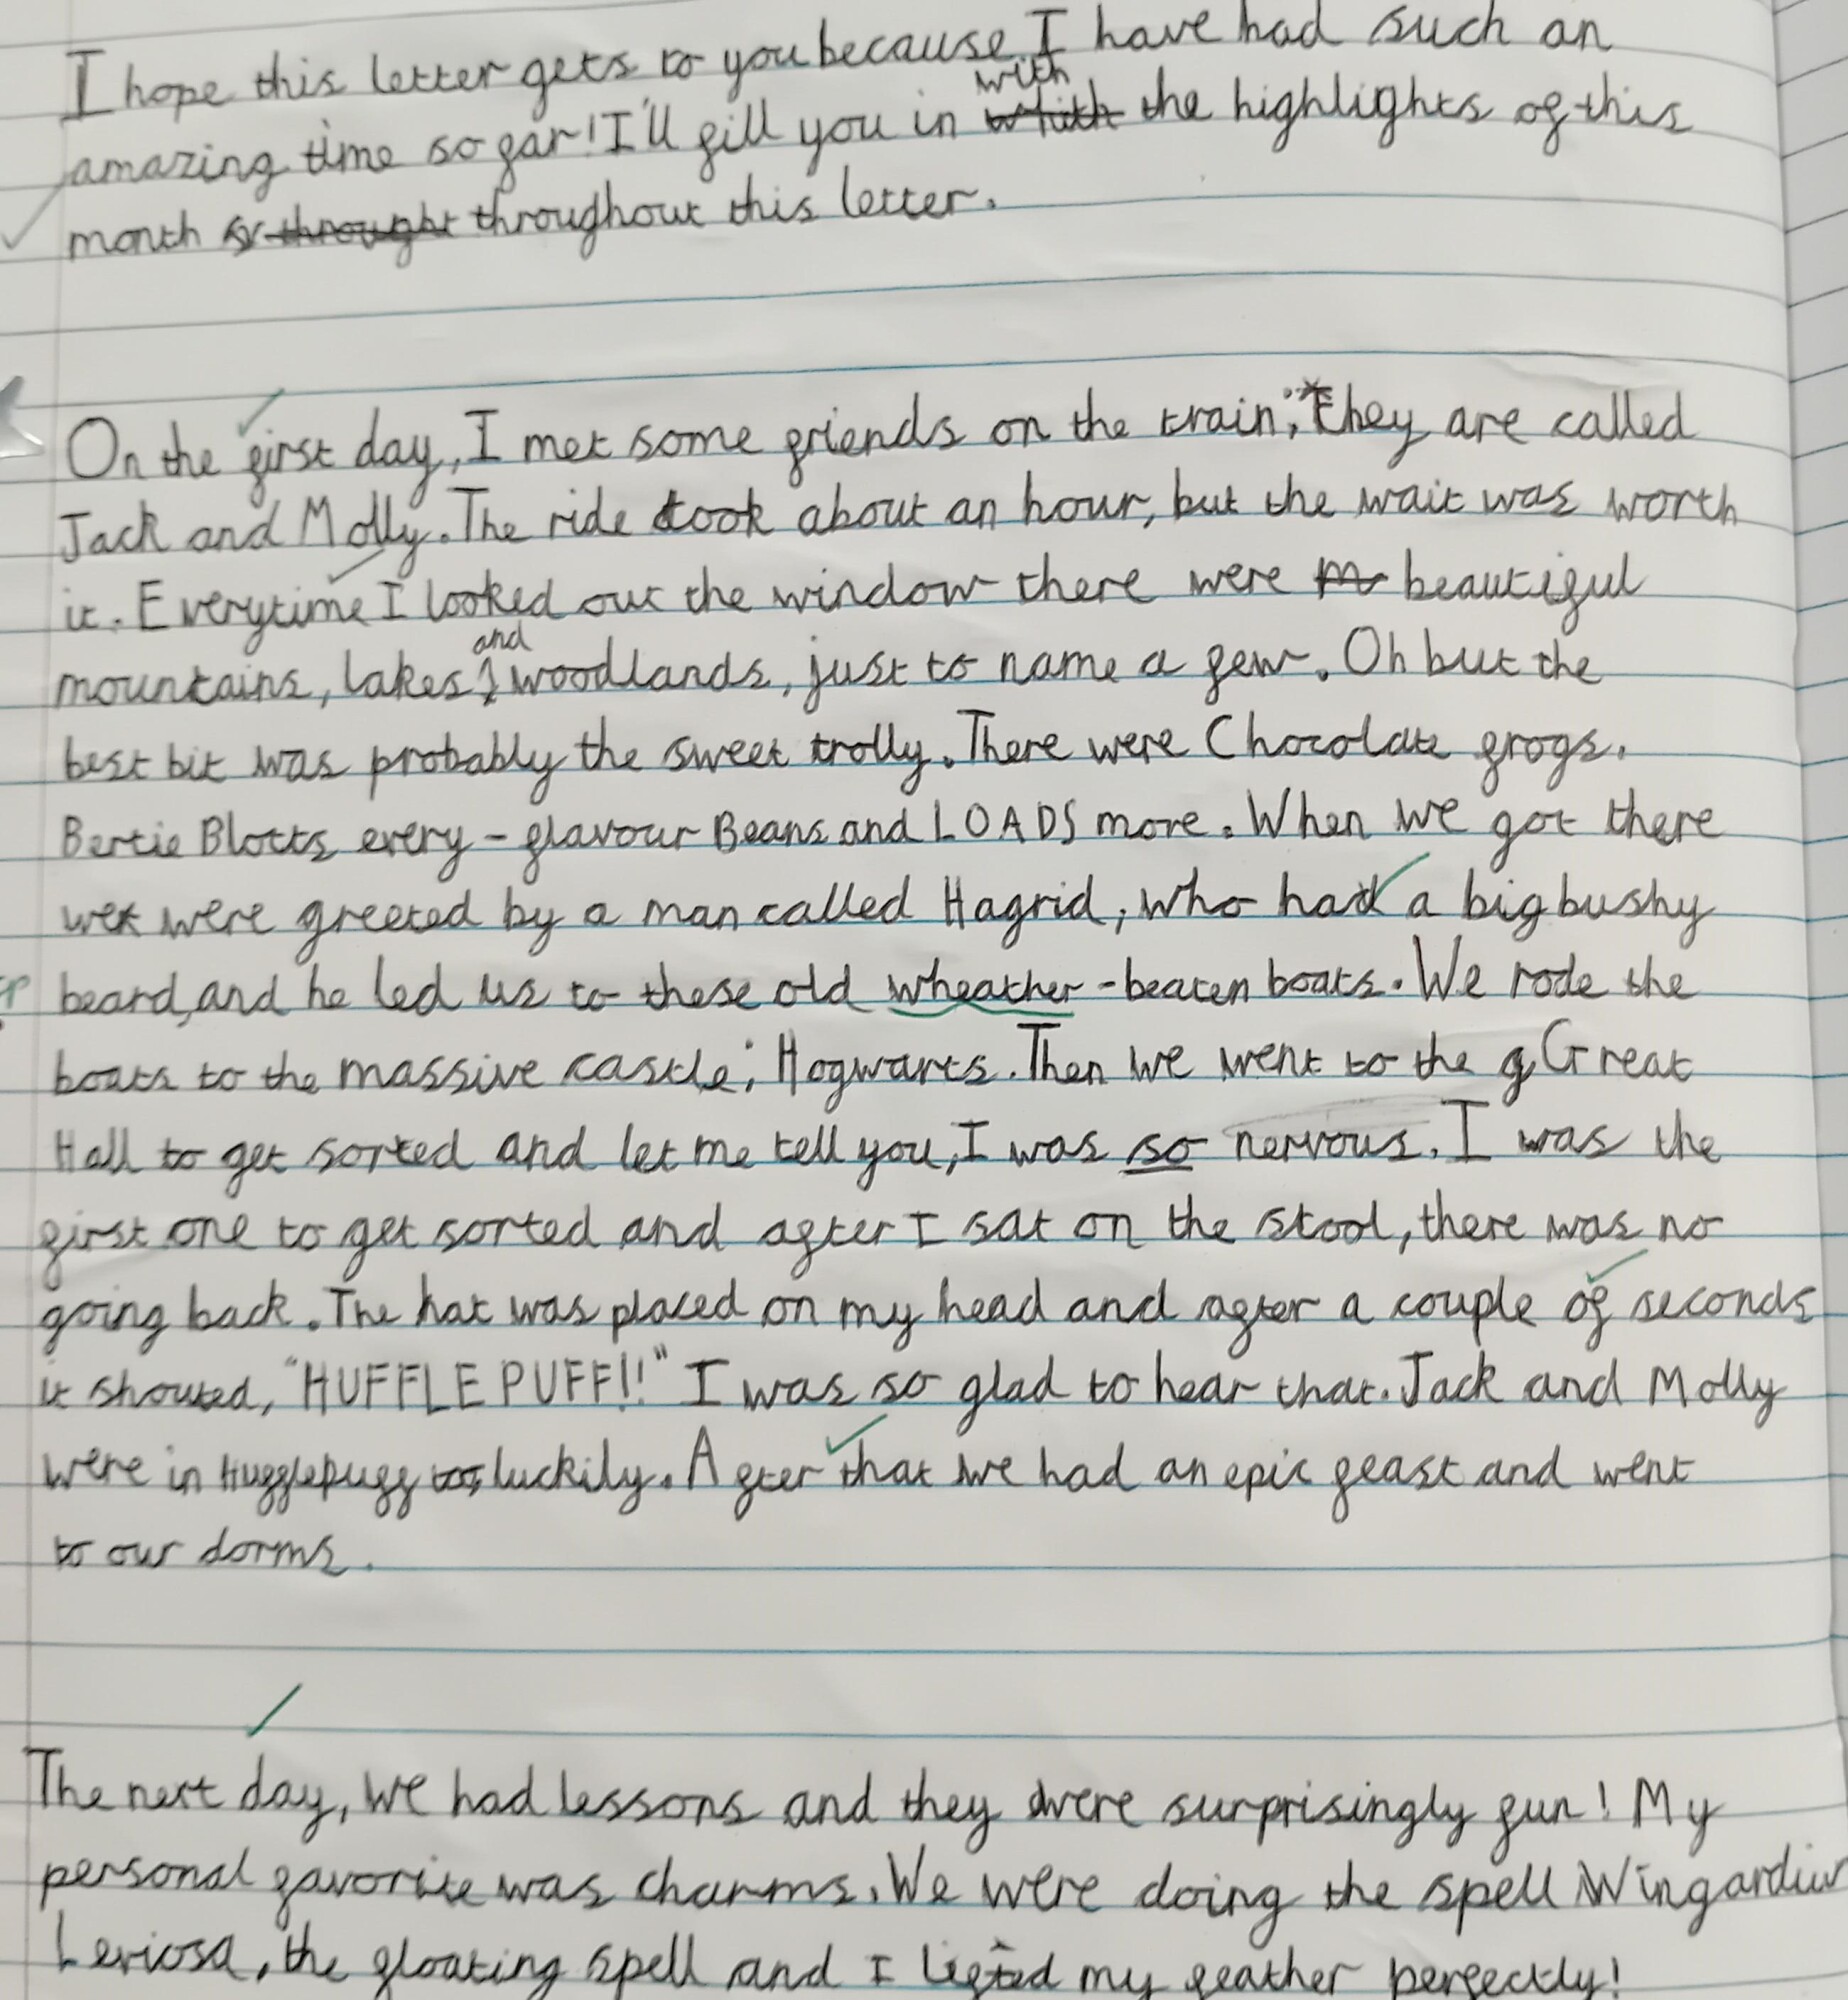 I hope this letter gets to you because I have had such an
amazing time so far! I'll fill you in with the highlights of this
month throughout this letter.
On the first day, I met some friends on the train; they are called
Jack and Molly. The ride took about an hour, but the wait was worth
it. Everytime I looked out the window there were beautiful
mountains, lakes and woodlands, just to name a few. Oh but the
best bit was probably the sweet trolly. There were Chocolate frogs.
Bertie Blotts every-flavour Beans and LOADS more. When we got there
we were greeted by a man called Hagrid, who had a big bushy
beard, and he led us to these old wheather-beaten boats. We rode the
boats to the massive castle; Hogwarts. Then we went to the Great
Hall to get sorted and let me tell you, I was so nervous. I was the
first one to get sorted and after I sat on the stool, there was no
going back. The hat was placed on my head and after a couple of seconds
it shouted, "HUFFLEPUFF!!" I was so glad to hear that. Jack and Molly
were in Hufflepuff luckily. After that we had an epic feast and went
to our dorms.
The next day, we had lessons and they were surprisingly fun! My
personal favorite was charms. We were doing the spell Wingardium
Leviosa, the floating spell and I lifted my feather perfectly!